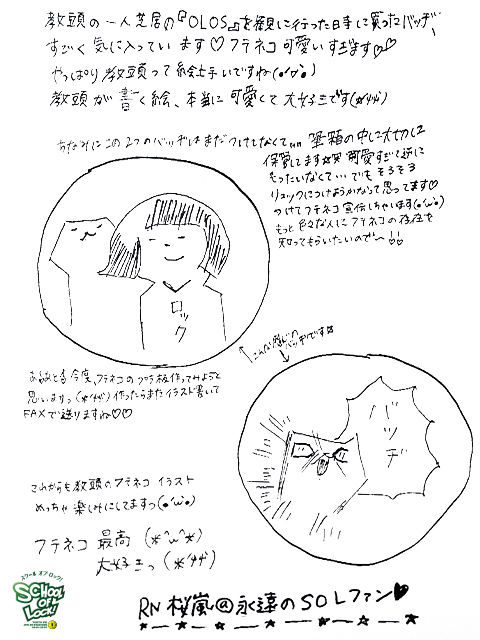 教頭の一人芝居の『OLOS』を観に行った日に買ったバッヂ、
すごく気に入っています♡フテネコ可愛いすぎます♡
やっぱり教頭って絵上手いですね(•'∀'•)
教頭が書く絵、本当に可愛くて大好きです(*´艸`)
ちなみにこの2つのバッヂはまだつけてなくて… 筆箱の中に大切に
保管してます☆※可愛すぎて逆に
もったいなくて… でもそろそろ
リュックにつけようかなって思ってます♡
つけてフテネコ宣伝しちゃいます(•'ω'•)
もっと色々な人にフテネコの存在を
知ってもらいたいので〜!!
ロック
↑こんな感じの
バッヂです☆
あ、あと今度、フテネコのプラ板作ってみようと
思いまっっ(*´艸`)作ったらまたイラスト書いて
FAXで送りますね♡♡
バッヂ
これからも教頭のフテネコイラスト
めっちゃ楽しみにしてますっ(•'ω'•)
フテネコ 最高 (*^ω^*)
大好きっ(*´艸`)
スクールオブロック!
SCHOOL OF LOCK!
RN 桜嵐@永遠のSOLファン♥